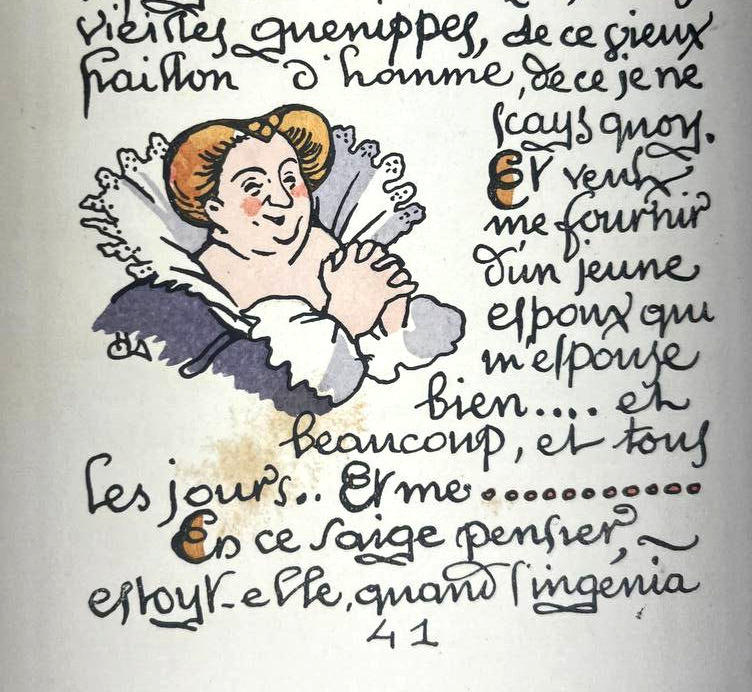 vieilles guenippes, de ce vieux
haillon d'homme, de ce je ne
scays quoy.
Et veulx
me fournir
d'un jeune
espoux qui
m'espouse
bien.... et
beaucoup, et tous
les jours.. Et me...........
En ce saige penser,
estoyt-elle, quand s'ingénia
41